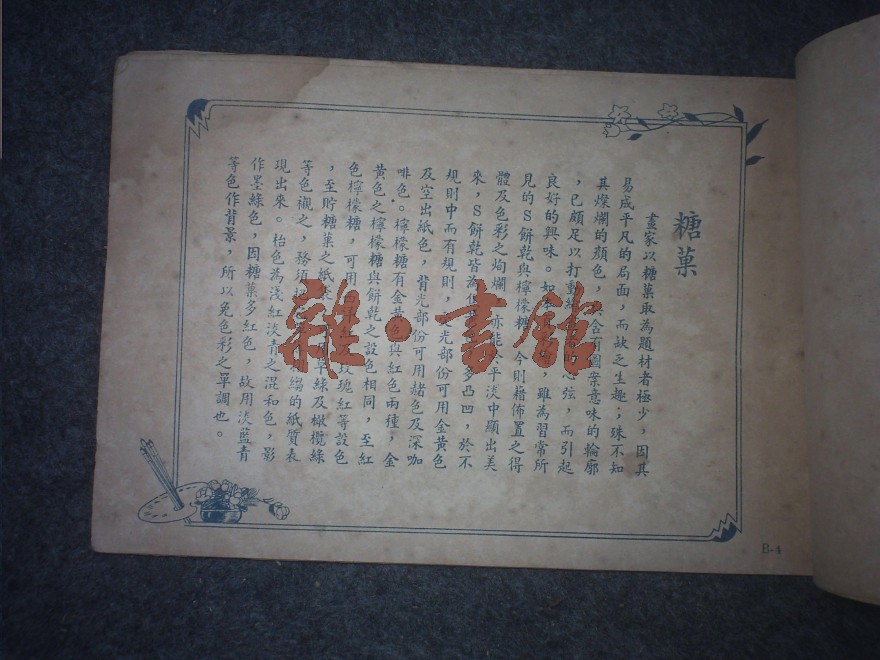 糖菓
畫家以糖菓取為題材者極少，因其
易成平凡的局面，而缺乏生趣；殊不知
其燦爛的顏色，含有圖案意味的輪廓
，已頗足以打動　心弦，而引起
良好的興味。如　雖為習常所
見的S餅乾與檸檬糖，今則藉佈置之得
體及色彩之絢爛，亦能於平淡中顯出美
來，S餅乾皆為　多凸凹，於不
規則中而有規則，光部份可用金黃色
及空出紙色，背光部份可用赭色及深咖
啡色。檸檬糖有金黃色與紅色兩種，金
黃色之檸檬糖與餅乾之設色相同，至紅
色檸檬糖，可用　玫瑰紅等設色
，至貯糖菓之紙袋　草綠及橄欖綠
等色襯之，務須把　縐的紙質表
現出來。枱色為淺紅淡青之混和色，影
作墨綠色，因糖菓多紅色，故用淡藍青
等色作背景，所以免色彩之單調也。
B·4
雜·書館